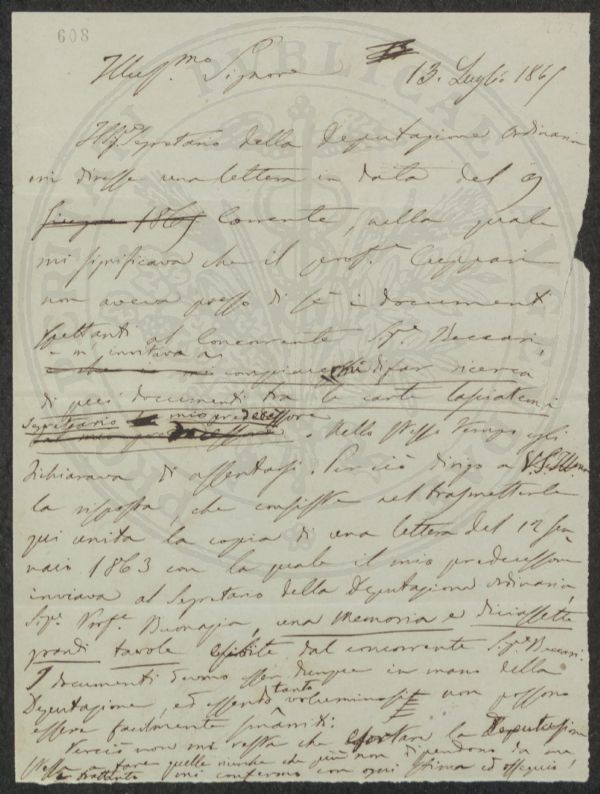 608
Illus.mo Signore 13. Luglio 1865
Il Sig.r Segretario della Deputazione Ordinaria
mi diresse una lettera in data del 9
Giugno 1865 Corrente, nella quale
mi significava che il prof.r Cuppari
non aveva presso di sé i documenti
spettanti al Concorrente Sig.r Beccari,
e m'invitava a
che a me di far ricerca
di quei documenti tra le carte lasciatemi
Segretario mio predecessore
dal mio predecessore. Nello stesso tempo egli
dichiarava di assentarsi. Perciò dirigo a V.S. Illma
la risposta, che consiste nel trasmetterle
qui unita la copia di una lettera del 12 Gen
naio 1863 con la quale il mio predecessore
inviava al Segretario della Deputazione ordinaria,
Sig.r Prof.r Buonamia, una Memoria e diciassette
grandi tavole esibite dal concorrente Sig.r Beccari.
I documenti devono esser dunque in mano della
Deputazione, ed essendo tanto voluminosi non possono
essere facilmente smarriti.
Perciò non mi resta che esortare la Deputazione
stessa a fare quelle ricerche che più non dipendono da me
e frattanto mi confermo con ogni stima ed ossequio!